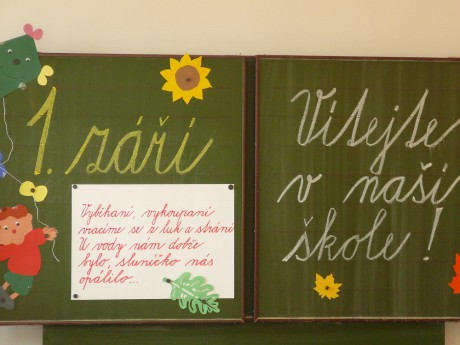 1. září
Vybíhaní, vykoupaní
vracíme se z luk a strání.
U vody nám dobře
bylo, sluníčko nás
opálilo...
Vítejte
v naší
škole!